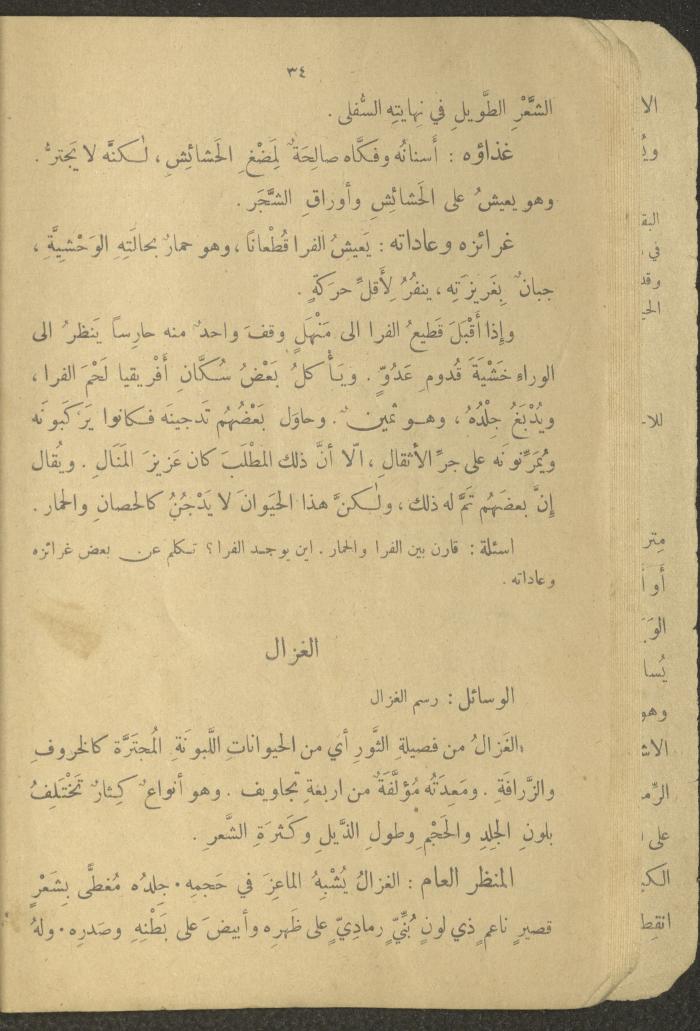 ٣٤
الشَّعْرِ الطَّويلِ في نِهايتِهِ السُّفلى .
غذاؤه : أَسنانُه وفكَّاه صالِحَةٌ لِمَضْغِ الحَشائِشِ ، لٰكنَّه لا يَجترُّ .
وهو يعيشُ على الحَشائِشِ وأَوراقِ الشَّجَرِ .
غرائزه وعاداته : يَعيشُ الفرا قُطْعاناً ، وهو حمارٌ بحالَتِهِ الوَحْشِيَّةِ ،
جبانٌ بِغَريزَتِه ، ينفُرُ لِأَقلِّ حرَكَةٍ .
وإِذا أَقْبَلَ قَطيعُ الفرا الى مَنْهَلٍ وقفَ واحدٌ منه حارِساً يَنظرُ الى
الوراءِ خَشْيَةَ قُدومِ عَدُوٍّ . ويَأْكلُ بَعْضُ سُكَّانِ أَفْريقيا لَحْمَ الفرا ،
ويُدْبَغُ جِلْدُهُ ، وهو ثمينٌ . وحاوَل بَعْضُهُم تَدجينَه فكانوا يَرْكَبونَه
ويُمَرِّنونَه على جرِّ الأثقالِ ، الّا أنَّ ذلك المَطْلَبَ كان عَزيزَ المَنَالِ . ويُقال
إِنَّ بعضَهُم تَمَّ له ذلك ، ولٰكنَّ هذا الحَيَوانَ لا يَدْجُنُ كالحصانِ والحمار .
اسئلة : قارن بين الفرا والحمار . اين يوجد الفرا ؟ تكلم عن بعض غرائزه
وعاداته .
الغزال
الوسائل : رسم الغزال
الغَزالُ من فصيلةِ الثَّور أَي من الحيواناتِ اللَّبونَةِ المُجتَرَّة كالخروفِ
والزَّرافَةِ . ومَعِدَتُه مُؤلَّفَةٌ من اربعةِ تجاويف . وهو أنواعٌ كِثارٌ تَخْتَلِفُ
بلونِ الجِلدِ والحَجْمِ وطولِ الذَّيلِ وكَثرَةِ الشَّعرِ .
المنظر العام : الغزالُ يُشْبِهُ الماعِزَ في حَجمِه . جِلدُه مُغطًّى بِشَعْرٍ
قصيرٍ ناعمٍ ذي لونٍ بُنِّيٍّ رمادِيٍّ على ظَهرِه وأَبيضَ على بَطْنِهِ وصَدرِه . ولهُ